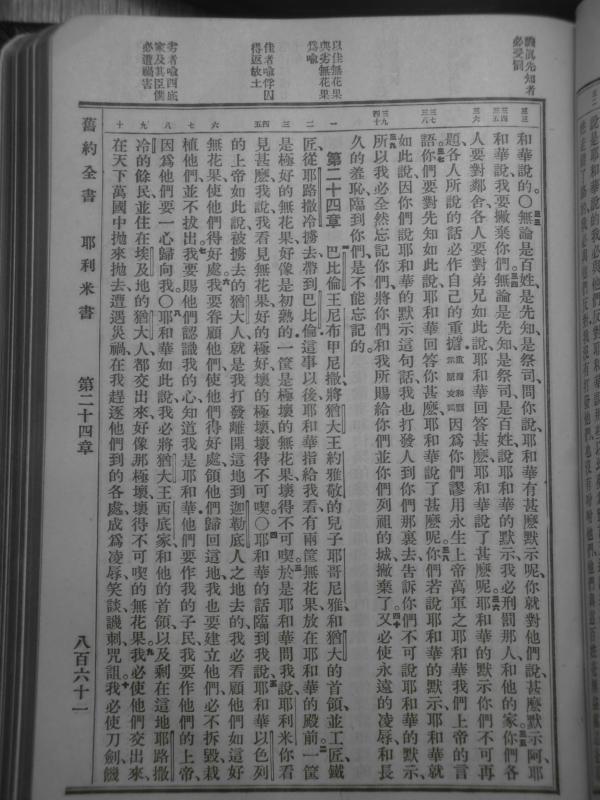 先知者
必受罰
以佳無花果
與劣無花果
爲喻
佳者喻俘囚
得返故土
劣者喻西底
家及其臣僕
必遭禍害
和華說的〇無論是百姓、是先知、是祭司、問你說、耶和華有甚麼默示呢、你就對他們說、甚麼默示阿、耶
和華說、我要撇棄你們。無論是先知、是祭司、是百姓、說耶和華的默示、我必刑罰那人、和他的家。你們各
人要對鄰舍、各人要對弟兄、如此說、耶和華回答甚麼、耶和華說了甚麼呢、耶和華的默示、你們不可再
題、各人所說的話必作自己的重擔、因爲你們謬用永生上帝、萬軍之耶和華我們上帝的言
語。你們要對先知如此說、耶和華回答你甚麼、耶和華說了甚麼呢。你們若說耶和華的默示、耶和華就
如此說、因你們說耶和華的默示這句話、我也打發人到你們那裏去、告訴你們不可說耶和華的默示、
所以我必全然忘記你們、將你們、和我所賜給你們並你們列祖的城撇棄了、又必使永遠的凌辱、和長
久的羞恥、臨到你們、是不能忘記的。
第二十四章 巴比倫王尼布甲尼撒、將猶大王約雅敬的兒子耶哥尼雅、和猶大的首領、並工匠、鐵
匠、從耶路撒冷擄去帶到巴比倫、這事以後、耶和華指給我看、有兩筐無花果放在耶和華的殿前。一筐
是極好的無花果、好像是初熟的、一筐是極壞的無花果、壞得不可喫。於是耶和華問我說、耶利米、你看
見甚麼、我說、我看見無花果、好的極好、壞的極壞、壞得不可喫〇耶和華的話臨到我說、耶和華以色列
的上帝如此說、被擄去的猶大人、就是我打發離開這地、到迦勒底人之地去的、我必看顧他們如這好
無花果、使他們得好處。我要眷顧他們、使他們得好處、領他們歸回這地、我也要建立他們、必不拆毀、栽
植他們、並不拔出。我要賜他們認識我的心、知道我是耶和華、他們要作我的子民、我要作他們的上帝、
因爲他們要一心歸向我〇耶和華如此說、我必將猶大王西底家、和他的首領、以及剩在這地耶路撒
冷的餘民、並住在埃及地的猶大人、都交出來、好像那極壞、壞得不可喫的無花果。我必使他們交出來、
在天下萬國中拋來拋去、遭遇災禍、在我趕逐他們到的各處、成爲凌辱、笑談、譏刺、咒詛。我必使刀劍、饑
舊約全書 耶利米書 第二十四章 八百六十一